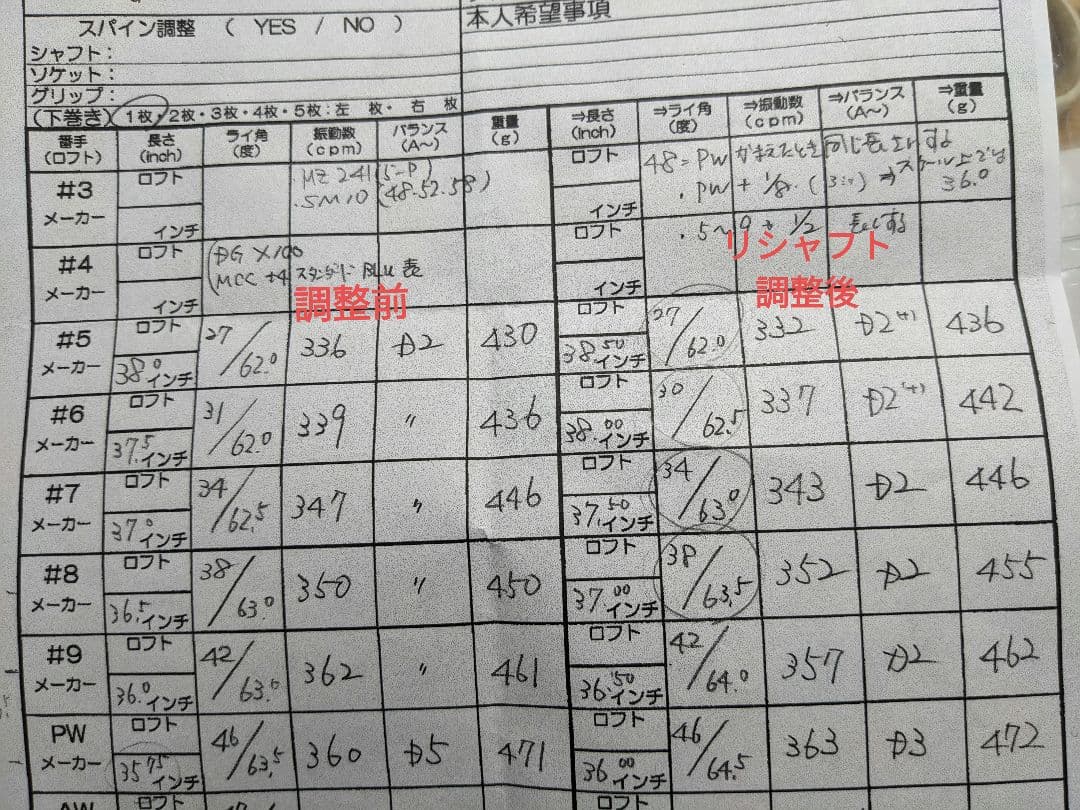 スパイン調整 （ YES / NO ）
本人希望事項
シャフト：
ソケット：
グリップ：
（下巻き） 1枚・2枚・3枚・4枚・5枚：左 枚・ 右 枚
番手（ロフト） 長さ(inch) ライ角（度） 振動数(cpm) バランス(A～) 重量(g) ⇒長さ(inch) ⇒ライ角（度） ⇒振動数(cpm) ⇒バランス(A～) ⇒重量(g)
#3 メーカー ロフト インチ ロフト インチ
MZ241 (5-P)
.5M10 (48.52.58)
48=PW かまえたとき同じ長さにする
.PW + 1/8. ⇒スケール上では 36.0
#4 メーカー ロフト インチ ロフト インチ
DG X100
MCC +4 スタンダード BLU
.5～9 + 1/2 長くする
調整前
リシャフト
調整後
#5 メーカー ロフト 38.0インチ 27/62.0 336 D2 430 ロフト 38.50インチ 27/62.0 332 D2(+) 436
#6 メーカー ロフト 37.5インチ 31/62.0 339 〃 436 ロフト 38.00インチ 30/62.5 337 D2(+) 442
#7 メーカー ロフト 37.0インチ 34/62.5 347 〃 446 ロフト 37.50インチ 34/63.0 343 D2 446
#8 メーカー ロフト 36.5インチ 38/63.0 350 〃 450 ロフト 37.00インチ 38/63.5 352 D2 455
#9 メーカー ロフト 36.0インチ 42/63.0 362 〃 461 ロフト 36.50インチ 42/64.0 357 D2 462
PW メーカー ロフト 35.75インチ 46/63.5 360 D5 471 ロフト 36.00インチ 46/64.5 363 D3 472
AW ロフト ロフト